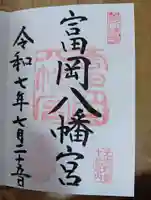 富岡八幡宮
令和七年七月二十五日